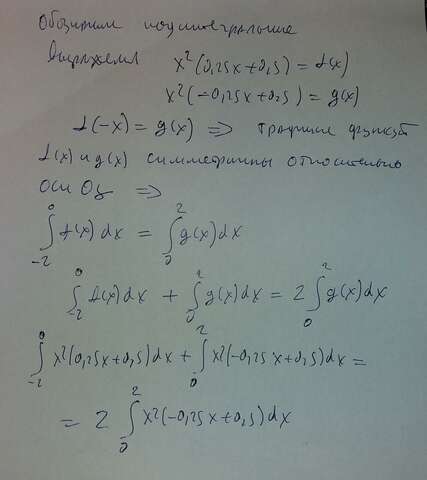 Обозначим подинтегральные
выражения x²(0,25x+0,5) = f(x)
x²(-0,25x+0,5) = g(x)
f(-x) = g(x) ⇒ графики функций
f(x) и g(x) симметричны относительно
оси Oy ⇒
∫₋₂⁰ f(x)dx = ∫₀² g(x)dx
∫₋₂⁰ f(x)dx + ∫₀² g(x)dx = 2 ∫₀² g(x)dx
∫₋₂⁰ x²(0,25x+0,5)dx + ∫₀² x²(-0,25x+0,5)dx =
= 2 ∫₀² x²(-0,25x+0,5)dx